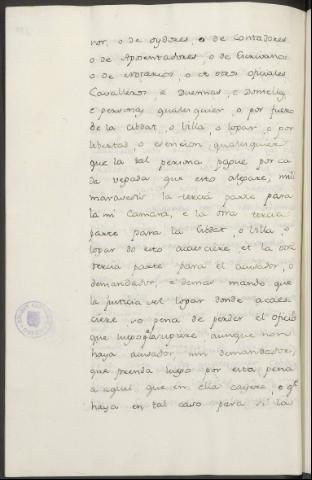 nor, o de oydores, o de Contadores
o de Aposentadores, o de Escrivanos
o de notarios, o de otros oficiales
Cavalleros, e Duennas, e Doncellas,
e personas qualesquier, o por fuero
de la cibdat, o Villa, o logar, o por
libertad, o esencion, qualesquier
que la tal persona pague por ca
da vegada que esto alegare, mill
maravedis la tercia parte para
la mi Camara, e la otra tercia
parte para la Cibdat, o Villa, o
logar do esto acaesciere et la otra
tercia parte para el acusador, o
demandador, e demas mando que
la justicia del logar donde acaes-
ciere, so pena de perder el oficio
que luego que lo supiere aunque non
haya acusador, nin demandador,
que prenda luego por esta pena
a aquel que en ella cayere, e que
haya en tal caso para si la